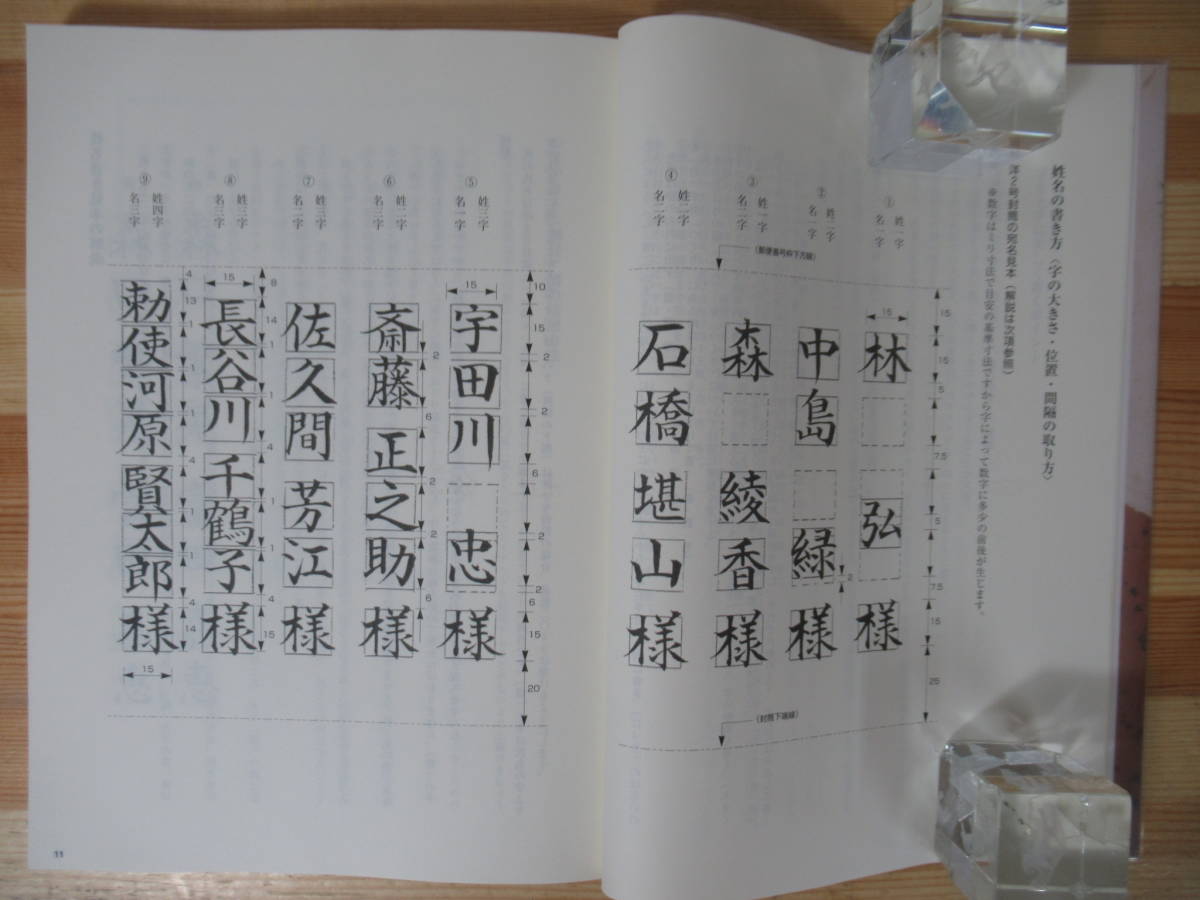 姓名の書き方〈字の大きさ・位置・間隔の取り方〉
洋2号封筒の宛名見本(解説は次項参照)
※数字はミリ寸法で目安の基準寸法ですから字によって数字に多少の前後が生じます。
① 姓一字
名一字
林 弘 様
② 姓二字
名一字
中島 緑 様
③ 姓一字
名二字
森 綾香 様
④ 姓二字
名二字
石橋 堪山 様
(郵便番号枠下方線)
(封筒下端線)
15
15
15
5
7.5
5
7.5
2
15
25
⑤ 姓三字
名一字
宇田川 忠 様
⑥ 姓二字
名三字
斎藤 正之助 様
⑦ 姓三字
名二字
佐久間 芳江 様
⑧ 姓三字
名三字
長谷川 千鶴子 様
⑨ 姓四字
名三字
勅使河原 賢太郎 様
10
15
15
2
2
6
2
2
6
15
20
2
6
2
2
6
8
15
14
1
1
4
1
1
4
15
4
13
1
1
1
4
1
1
4
14
15
11